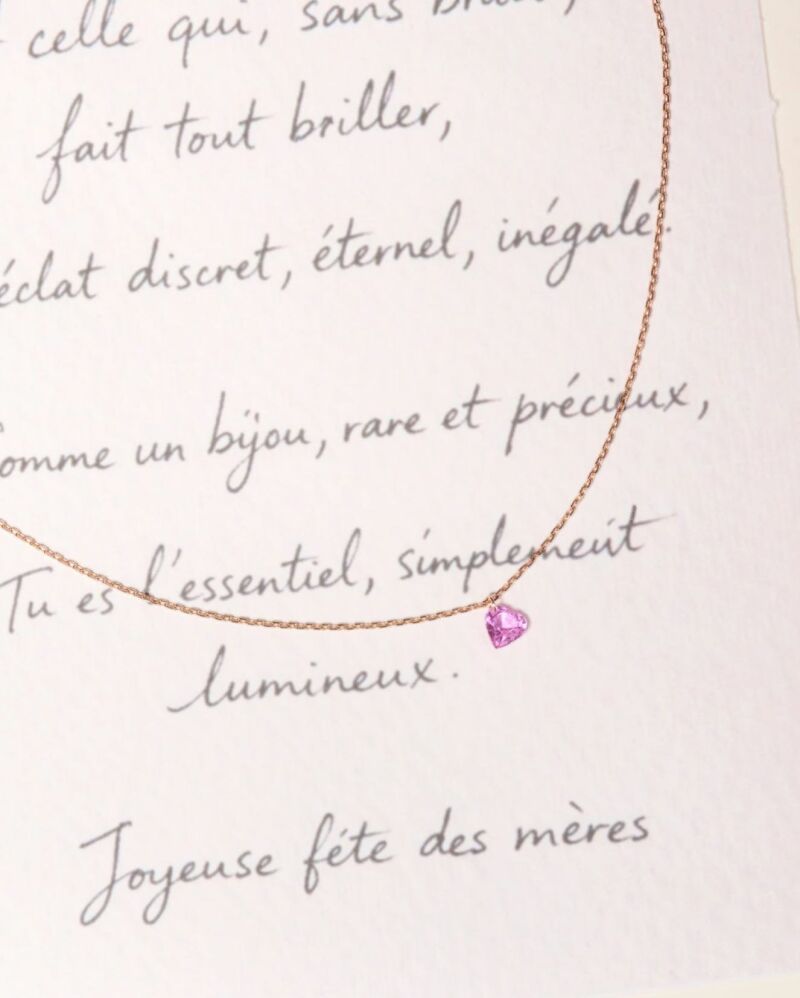 celle qui, sans
fait tout briller,
éclat discret, éternel, inégalé.
omme un bijou, rare et précieux,
Tu es l'essentiel, simplement
lumineux.
Joyeuse féte des mères